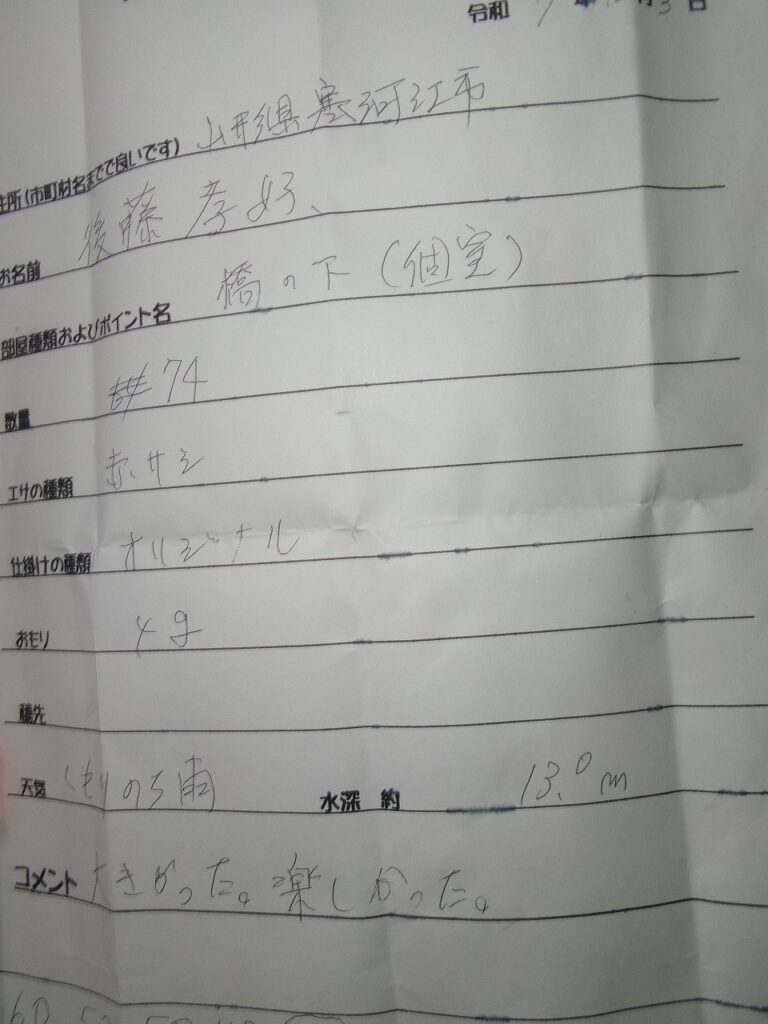 令和 7 年 月 3 日
住所(市町村名までで良いです) 山形県寒河江市
お名前 後藤 孝好、
部屋種類およびポイント名 橋の下(個室)
数量 74
エサの種類 赤サシ
仕掛けの種類 オリジナル
おもり 4g
穂先
天気 くもりのち雨 水深 約 13.0m
コメント 大きかった。楽しかった。